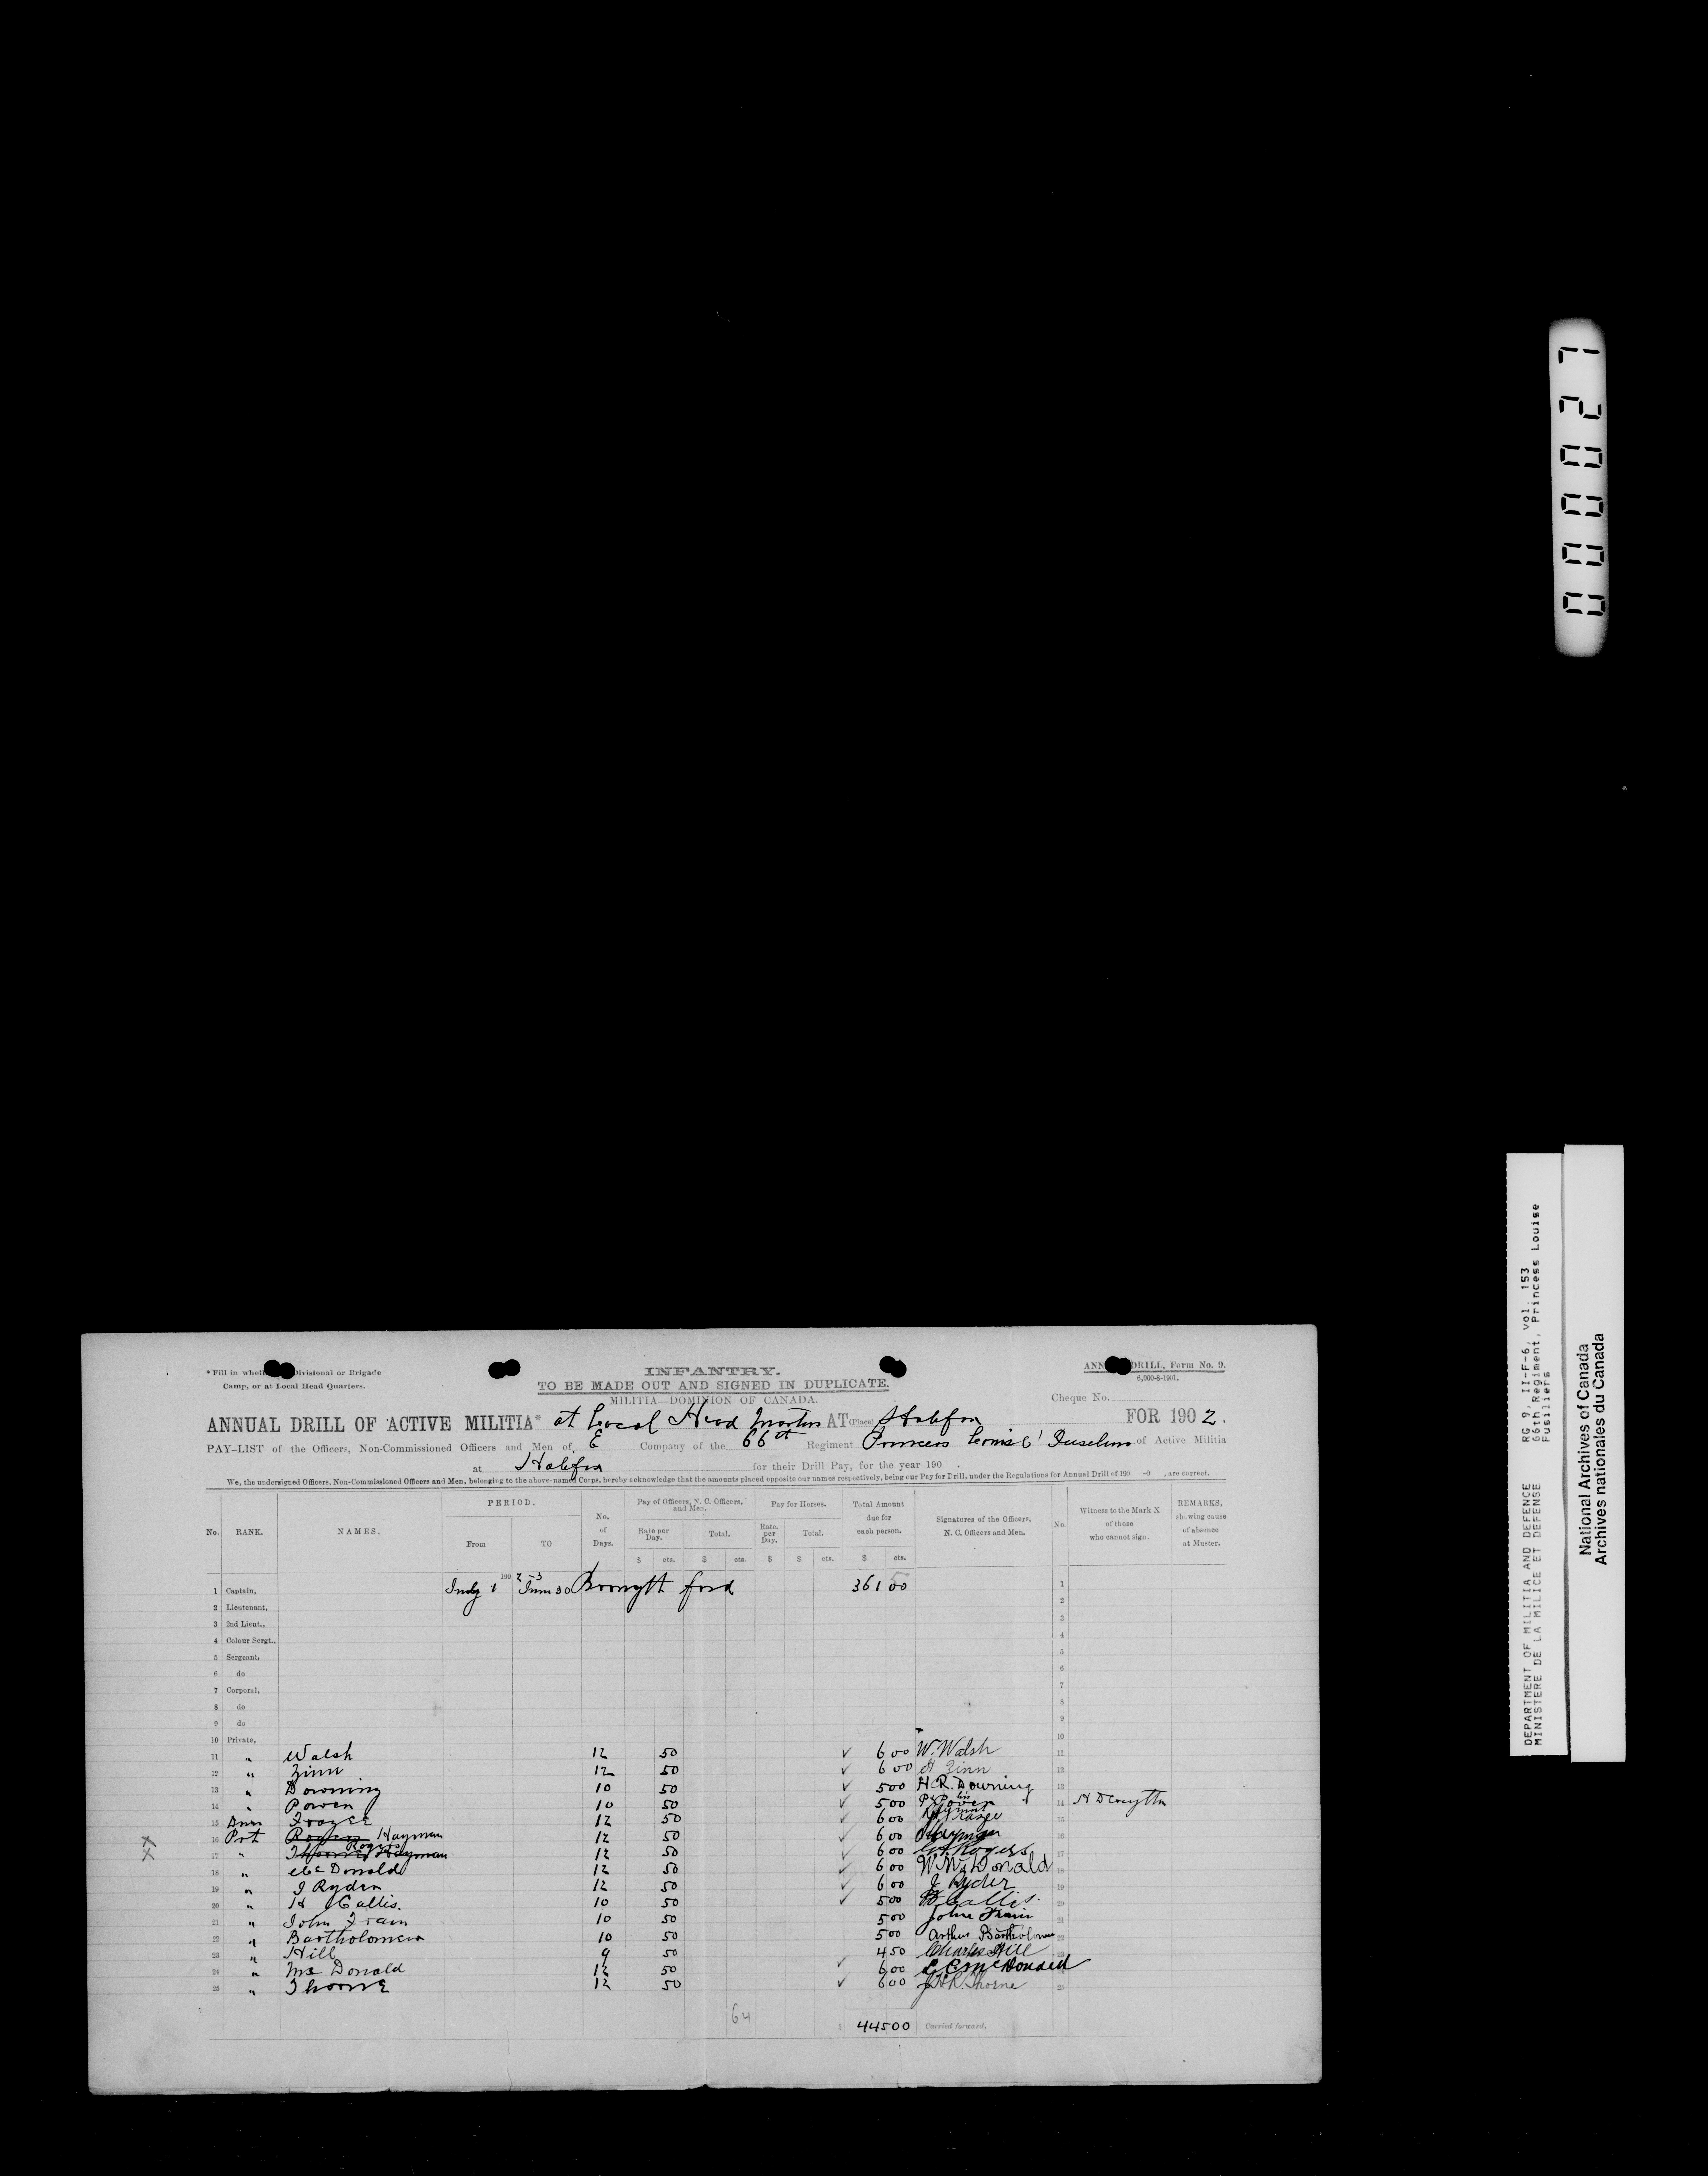 *Fill in whether Divisional or Brigade
Camp, or at Local Head Quarters.
INFANTRY.
TO BE MADE OUT AND SIGNED IN DUPLICATE.
MILITIA—DOMINION OF CANADA.
ANNUAL DRILL, Form No. 9.
6,000-8-1901.
Cheque No.
ANNUAL DRILL OF ACTIVE MILITIA* at Local Head AT (Place) Halifax FOR 1902.
PAY-LIST of the Officers, Non-Commissioned Officers and Men of E Company of the 66th Regiment Princess Louise of Active Militia
at Halifax for their Drill Pay, for the year 190 .
We, the undersigned Officers, Non-Commissioned Officers and Men, belonging to the above-named Corps, hereby acknowledge that the amounts placed opposite our names respectively, being our Pay for Drill, under the Regulations for Annual Drill of 190 -0 , are correct.
No. RANK. NAMES. PERIOD. From TO No. of Days. Pay of Officers, N. C. Officers, and Men. Rate per Day. Total. Pay for Horses. Rate per Day. Total. Total Amount due for each person. Signatures of the Officers, N. C. Officers and Men. No. Witness to the Mark X of those who cannot sign. REMARKS, showing cause of absence at Muster.
$ cts. $ cts. $ $ cts. $ cts.
1 Captain, July 1 190 2-3 June 30 Brought ford 361 00 1
2 Lieutenant, 2
3 2nd Lieut., 3
4 Colour Sergt., 4
5 Sergeant, 5
6 do 6
7 Corporal, 7
8 do 8
9 do 9
10 Private, 10
11 " Walsh 12 50 ✓ 6 00 W. Walsh 11
12 " Zinn 12 50 ✓ 6 00 Zinn 12
13 " Downing 10 50 ✓ 5 00 H R. Downing 13
14 " Power 10 50 ✓ 5 00 Power 14
15 Frazee 12 50 ✓ 6 00 Frazee 15
X 16 Prt Rogers Hayman 12 50 ✓ 6 00 Hayman 16
X 17 " Thorne Rogers Hayman 12 50 ✓ 6 00 Rogers 17
18 " McDonald 12 50 ✓ 6 00 W. McDonald 18
19 " J Ryder 12 50 ✓ 6 00 J Ryder 19
20 " H Callis. 10 50 ✓ 5 00 H Callis. 20
21 " John Train 10 50 5 00 John Train 21
22 " Bartholomew 10 50 5 00 Arthur Bartholomew 22
23 " Hill 9 50 4 50 Charles Hill 23
24 " McDonald 12 50 ✓ 6 00 McDonald 24
25 " Thorne 12 50 ✓ 6 00 J H R. Thorne 25
64
$ 445 00 Carried forward,
000027
DEPARTMENT OF MILITIA AND DEFENCE RG 9, II-F-6, vol. 153
MINISTERE DE LA MILICE ET DEFENSE 66th Regiment, Princess Louise
Fusiliers
National Archives of Canada
Archives nationales du Canada